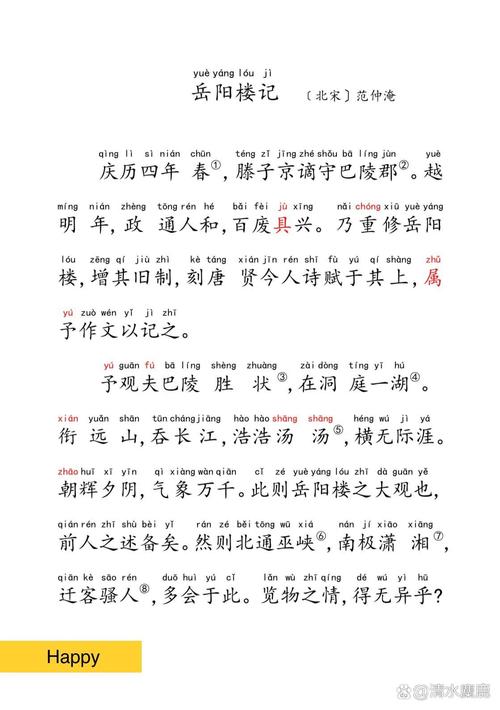 yuè yáng lóu jì
岳阳楼记 〔北宋〕范仲淹
qìng lì sì nián chūn téng zǐ jīng zhé shǒu bā líng jùn yuè
庆历四年春①,滕子京谪守巴陵郡②。越
míng nián zhèng tōng rén hé bǎi fèi jù xīng nǎi chóng xiū yuè yáng
明年,政通人和,百废具兴。乃重修岳阳
lóu zēng qí jiù zhì kè táng xián jīn rén shī fù yú qí shàng zhǔ
楼,增其旧制,刻唐贤今人诗赋于其上,属
yú zuò wén yǐ jì zhī
予作文以记之。
yú guān fú bā líng shèng zhuàng zài dòng tíng yī hú
予观夫巴陵胜状③,在洞庭一湖④。
xián yuǎn shān tūn cháng jiāng hào hào shāng shāng héng wú jì yá
衔远山,吞长江,浩浩汤汤⑤,横无际涯。
zhāo huī xī yīn qì xiàng wàn qiān cǐ zé yuè yáng lóu zhī dà guān yě
朝辉夕阴,气象万千。此则岳阳楼之大观也,
qián rén zhī shù bèi yǐ rán zé běi tōng wū xiá nán jí xiāo xiāng
前人之述备矣。然则北通巫峡⑥,南极潇湘⑦,
qiān kè sāo rén duō huì yú cǐ lǎn wù zhī qíng dé wú yì hū
迁客骚人⑧,多会于此。览物之情,得无异乎?
Happy
@清水麋鹿